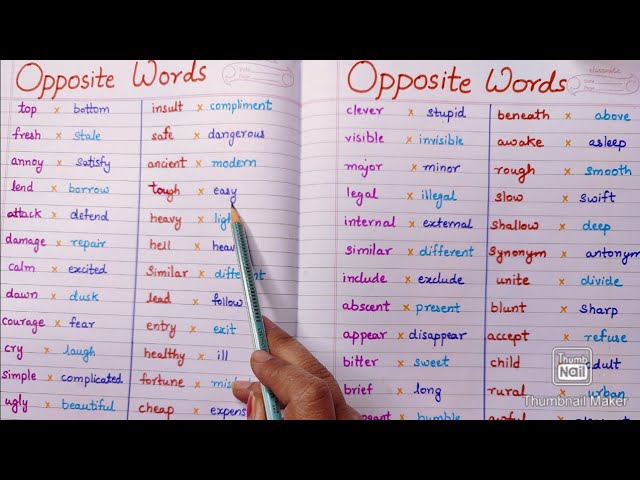 Opposite Words
top x bottom
fresh x stale
annoy x satisfy
lend x borrow
attack x defend
damage x repair
calm x excited
dawn x dusk
courage x fear
cry x laugh
simple x complicated
ugly x beautiful
insult x compliment
safe x dangerous
ancient x modern
tough x easy
heavy x ligh
hell x heav
similar x different
lead x follow
entry x exit
healthy x ill
fortune x mis
cheap x expens
Opposite Words
classmate
clever x stupid
visible x invisible
major x minor
legal x illegal
internal x external
similar x different
include x exclude
abscent x present
appear x disappear
bitter x sweet
brief x long
x humble
beneath x above
awake x asleep
rough x smooth
slow x swift
shallow x deep
synonym x antonym
unite x divide
blunt x sharp
accept x refuse
child adult
rural x urban
Thumb
Nail
Thumbnail Maker